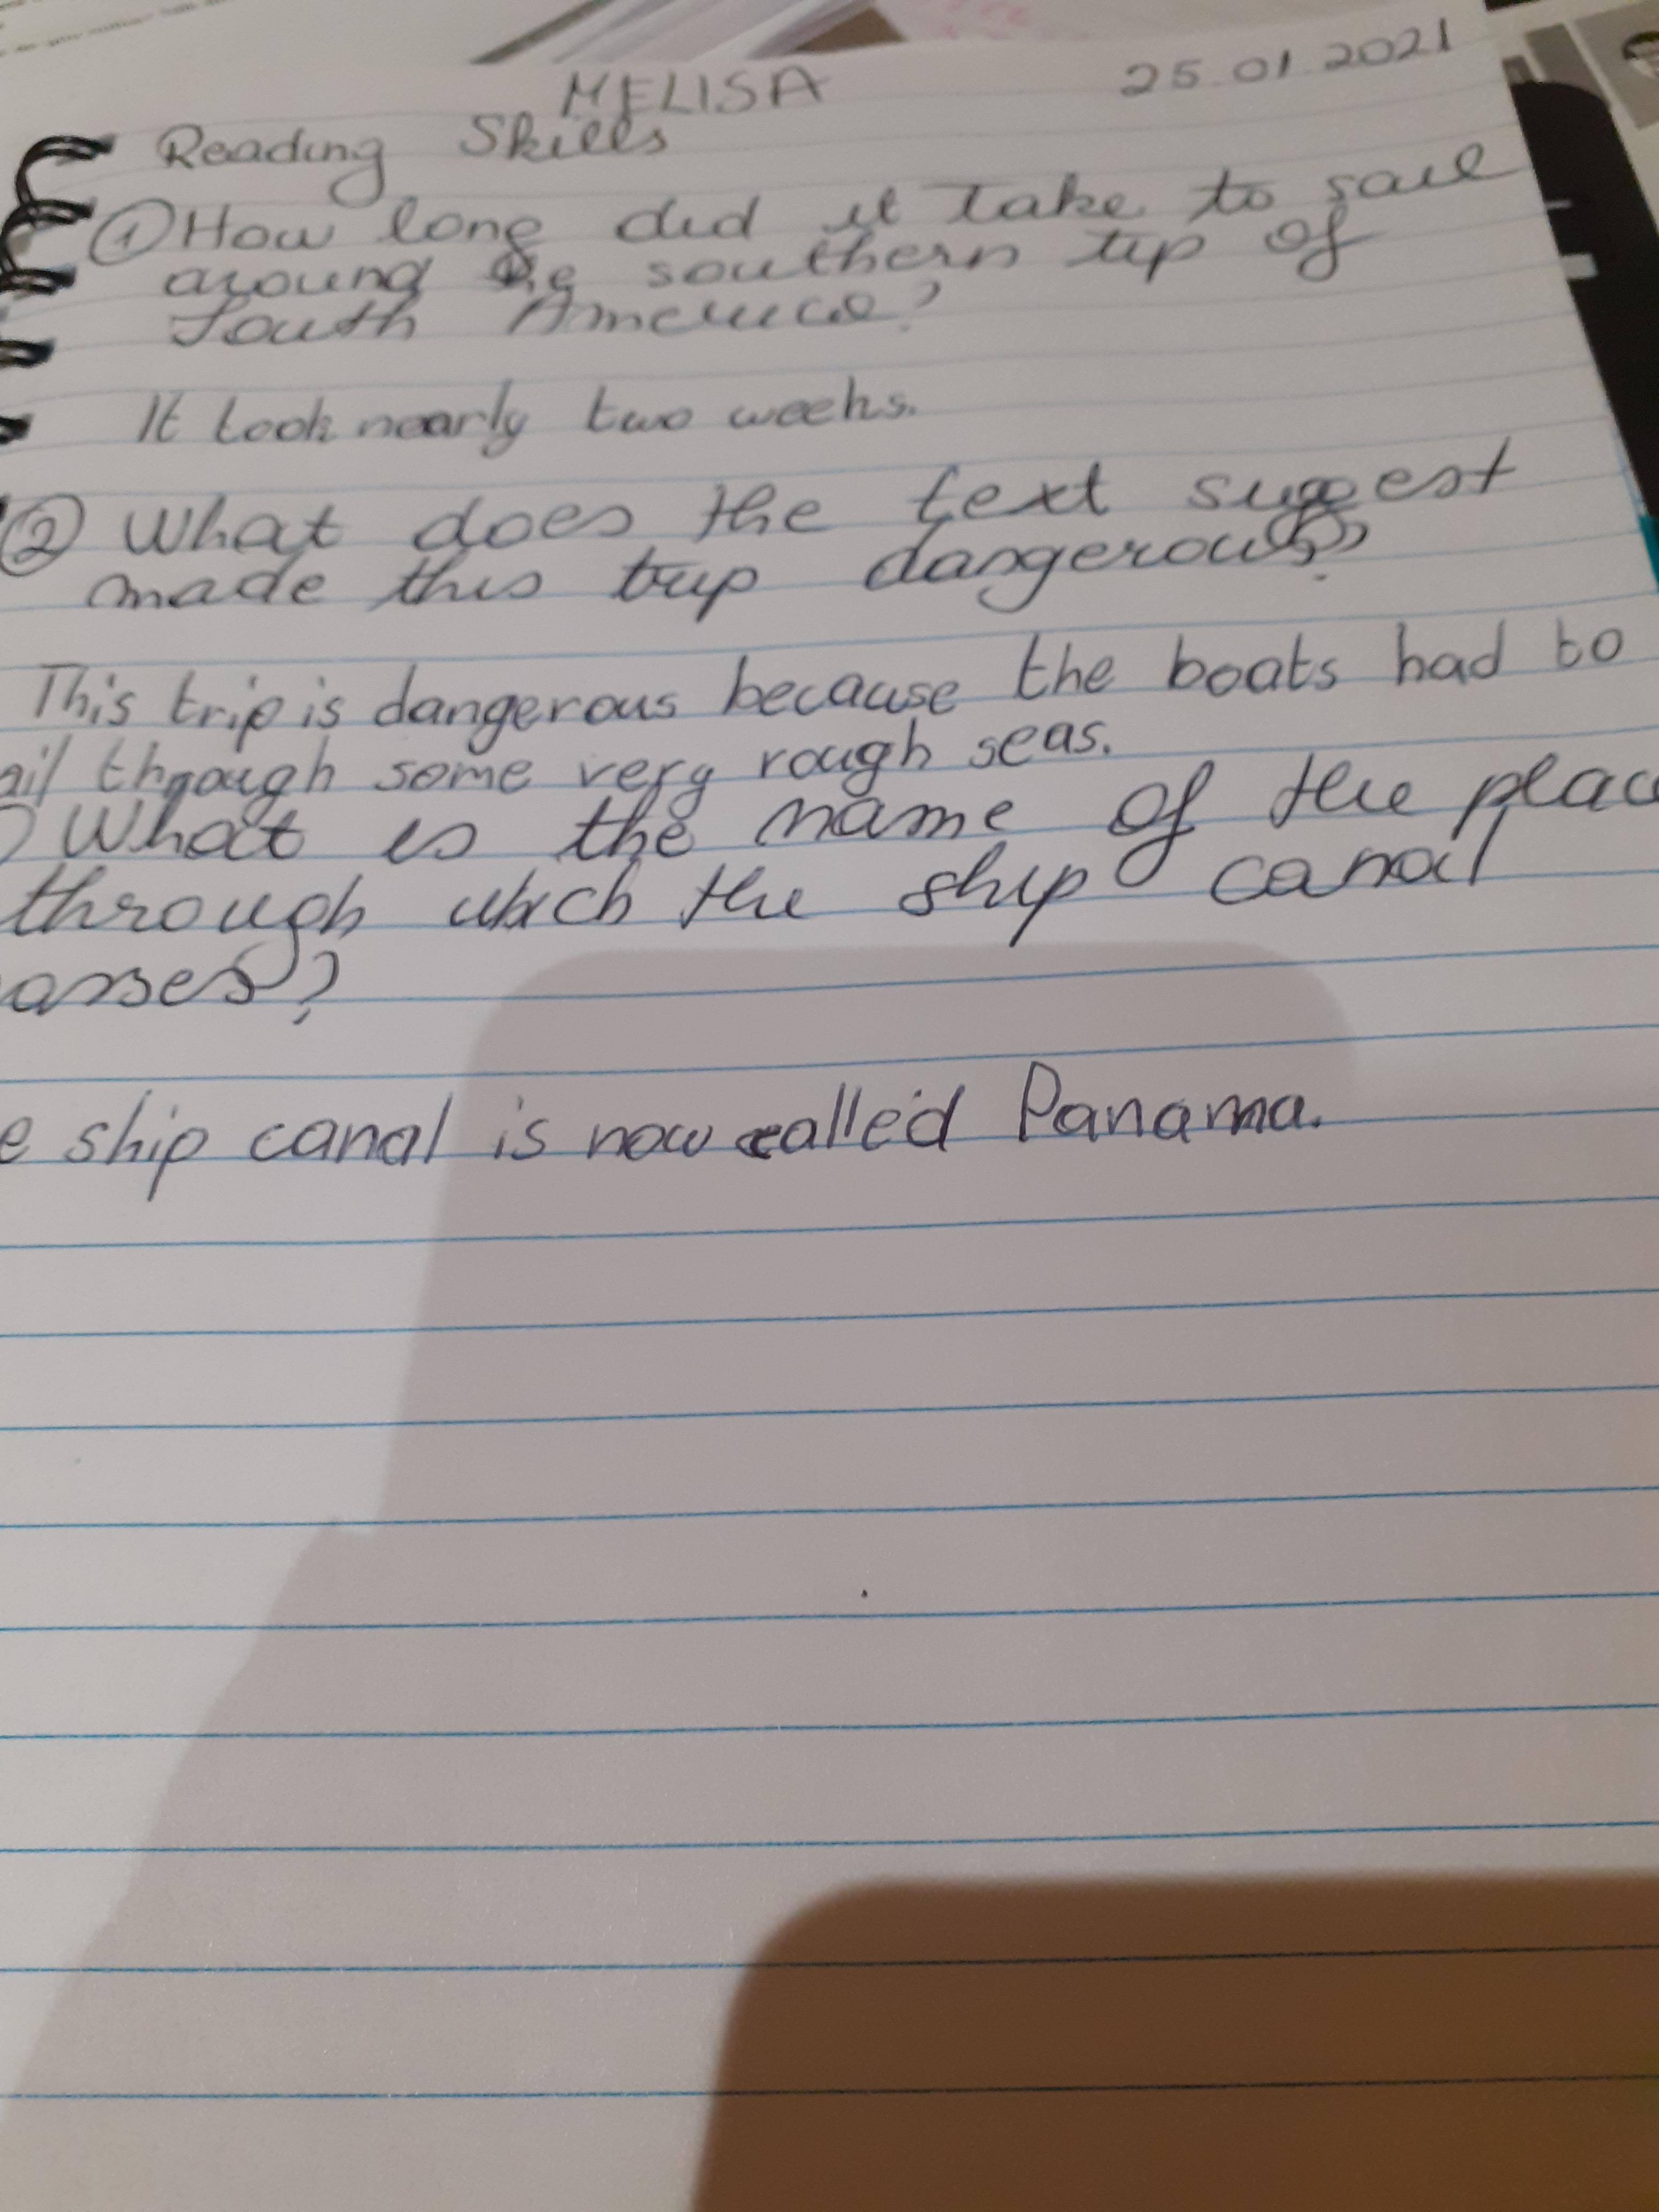 MELISA 25.01.2021
Reading Skills
① How long did it take to sail
around the southern tip of
South America?
It took nearly two weeks.
② What does the text suggest
made this trip dangerous?
This trip is dangerous because the boats had to
ail through some very rough seas.
What is the name of the plac
through which the ship canal
asses?
e ship canal is now called Panama.